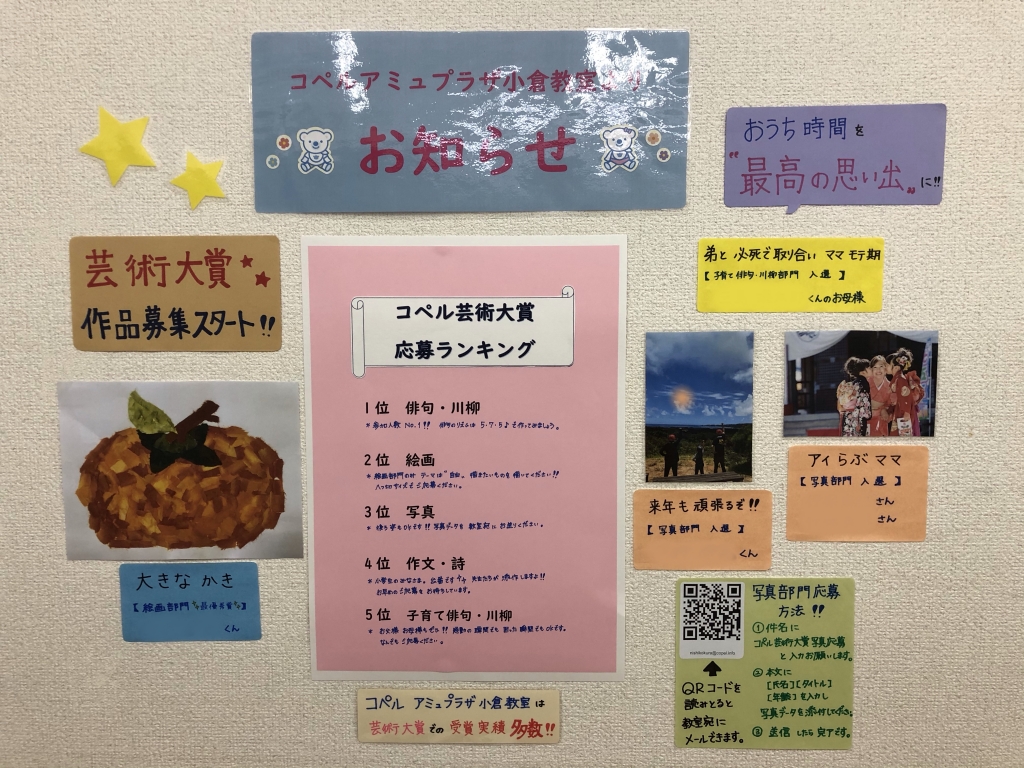 コペルアミュプラザ小倉教室より
お知らせ
おうち時間を
"最高の思い出"に!!
芸術大賞
作品募集スタート!!
弟と 必死で取り合い ママ モテ期
【子育て俳句・川柳部門 入選】
くんのお母様
コペル芸術大賞
応募ランキング
1位 俳句・川柳
* 参加人数 No.1!! 俳句のリズムは 5・7・5♪で作ってみましょう。
2位 絵画
* 絵画部門のみ テーマは"自由。 描きたいものを 描いてください!!
八つ切サイズで ご応募ください。
3位 写真
* 写真データを 教室宛に お送りください。
4位 作文・詩
* 小学生のみなさま、 先生たちが 添作しますよ!!
お早めの ご応募を お待ちしています。
5位 子育て俳句・川柳
* お父様 お母様もぜひ!! 感動の瞬間でも 困った瞬間でもOKです。
なんでも ご応募ください。
大きな かき
【絵画部門 最優秀賞】
くん
来年も 頑張るぞ!!
【写真部門 入選】
くん
アイらぶ ママ
【写真部門 入選】
さん
さん
コペル アミュプラザ小倉教室は
芸術大賞での 受賞実績 多数!!
QRコードを
読みとると
教室宛に
メールできます。
写真部門応募
方法!!
①件名に
コペル芸術大賞写真応募
と入力お願いします。
②本文に
[氏名][タイトル]
[年齢]を入力し
写真データを添付してください
③送信したら完了です。